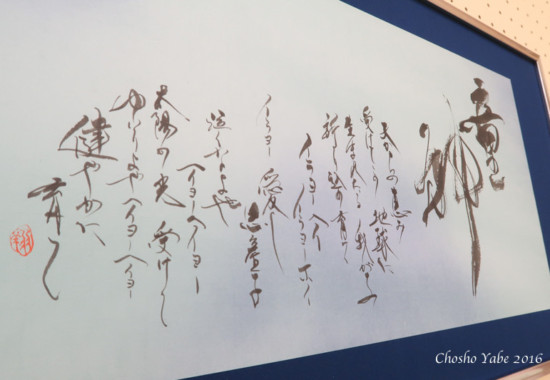 童神
天からの恵み
受けてこの地球に
生まれたる我が子
祈り込め育て
イラヨーヘイ
イラヨーホイ
イラヨー 愛し思産子
泣くなよや
ヘイヨーヘイヨー
太陽の光 受けて
ゆーいりよや ヘイヨーヘイヨー
健やかに
育て
Chosho Yabe 2016